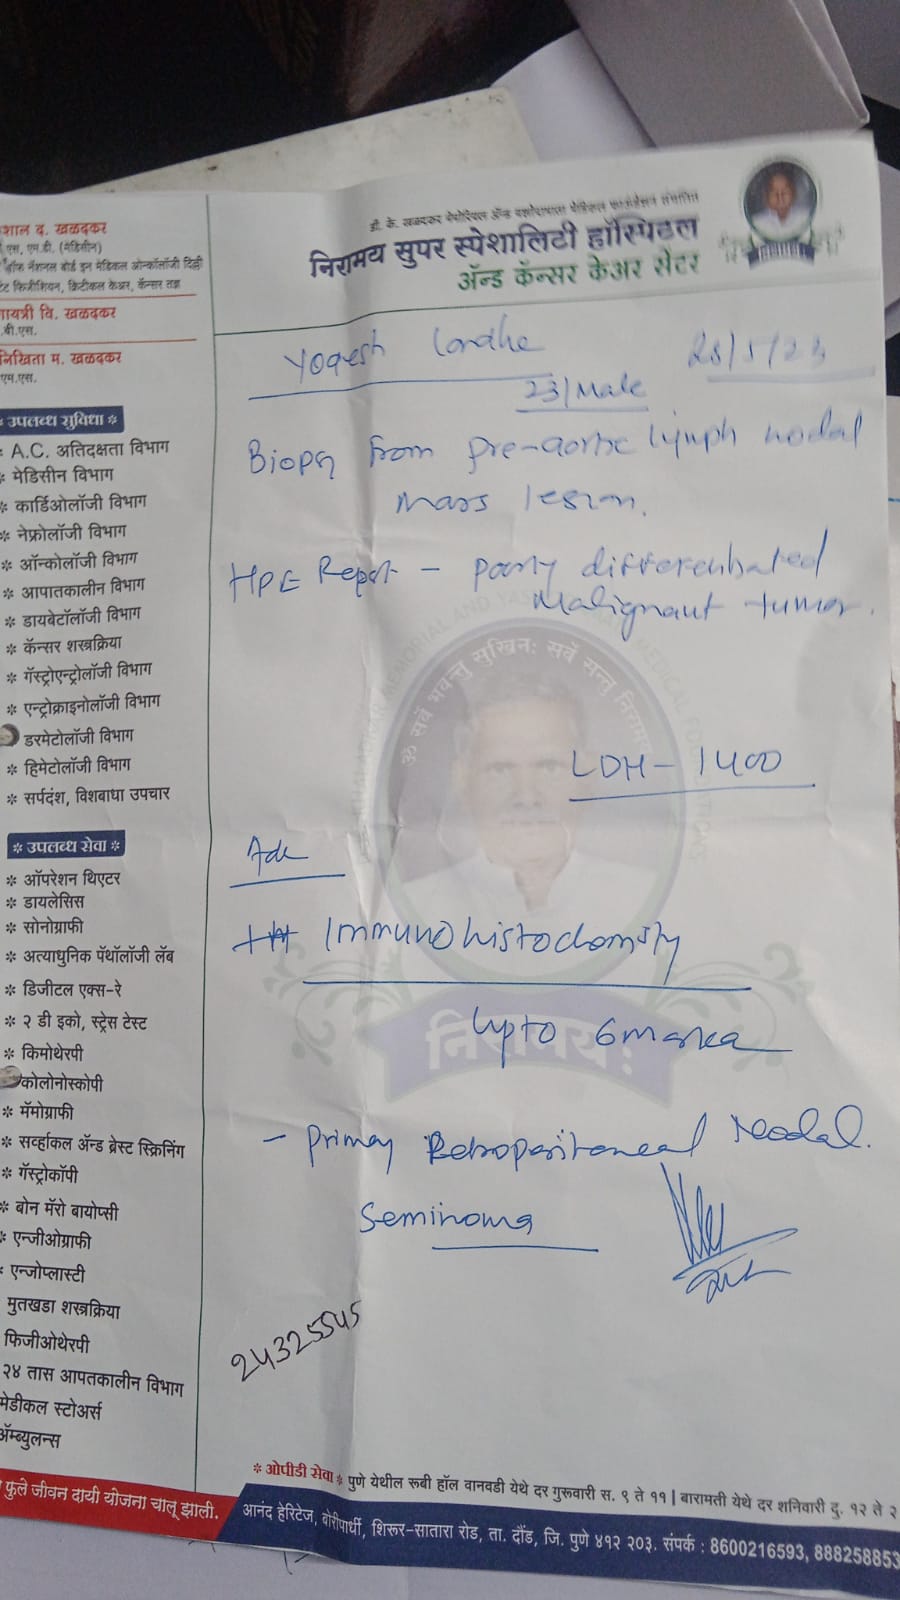 डी. के. खळदकर मेमोरियल अँड यशोदामाता मेडिकल फाउंडेशन संचलित
निरामय सुपर स्पेशालिटी हॉस्पिटल
अँन्ड कॅन्सर केअर सेंटर
शाल द. खळदकर
एस, एम.डी. (मेडिसीन)
ऑफ नॅशनल बोर्ड इन मेडिकल ऑन्कॉलॉजी दिल्ली
फिजीशियन, क्रिटीकल केअर, कॅन्सर तज्ञ
गायत्री वि. खळदकर
.बी.एस.
निखिता म. खळदकर
एम.एस.
* उपलब्ध सुविधा *
A.C. अतिदक्षता विभाग
* मेडिसीन विभाग
* कार्डिओलॉजी विभाग
* नेफ्रोलॉजी विभाग
* ऑन्कोलॉजी विभाग
* आपातकालीन विभाग
* डायबेटॉलॉजी विभाग
* कॅन्सर शस्त्रक्रिया
* गॅस्ट्रोएन्ट्रोलॉजी विभाग
* एन्ट्रोक्राइनोलॉजी विभाग
डरमेटोलॉजी विभाग
* हिमेटोलॉजी विभाग
* सर्पदंश, विशबाधा उपचार
* उपलब्ध सेवा *
* ऑपरेशन थिएटर
* डायलेसिस
* सोनोग्राफी
* अत्याधुनिक पॅथॉलॉजी लॅब
* डिजीटल एक्स-रे
* २ डी इको, स्ट्रेस टेस्ट
* किमोथेरपी
कोलोनोस्कोपी
* मॅमोग्राफी
* सर्व्हाकल अँन्ड ब्रेस्ट स्क्रिनिंग
* गॅस्ट्रोकॉपी
* बोन मॅरो बायोप्सी
* एन्जीओग्राफी
एन्जोप्लास्टी
मुतखडा शस्त्रक्रिया
फिजीओथेरपी
२४ तास आपतकालीन विभाग
मेडीकल स्टोअर्स
ॲम्ब्युलन्स
Yogesh Londhe
23/Male
Biopsy from pre-aortic lymph nodal
mass lesion.
HPE Report - Poorly differentiated
Malignant tumor.
LDH - 1400
Adv
Immunohistochemisty
Upto 6 marker
- Primary Retroperitoneal Nodal.
Seminoma
24325545
ॐ सर्वे भवन्तु सुखिनः सर्वे सन्तु निरामयाः
निरामयः
* ओपीडी सेवा * पुणे येथील रूबी हॉल वानवडी येथे दर गुरूवारी स. ९ ते ११ | बारामती येथे दर शनिवारी दु. १२ ते २
फुले जीवन दायी योजना चालू झाली.
आनंद हेरिटेज, बोरीपार्थी, शिरूर-सातारा रोड, ता. दौंड, जि. पुणे ४१२ २०३. संपर्क : 8600216593, 888258853